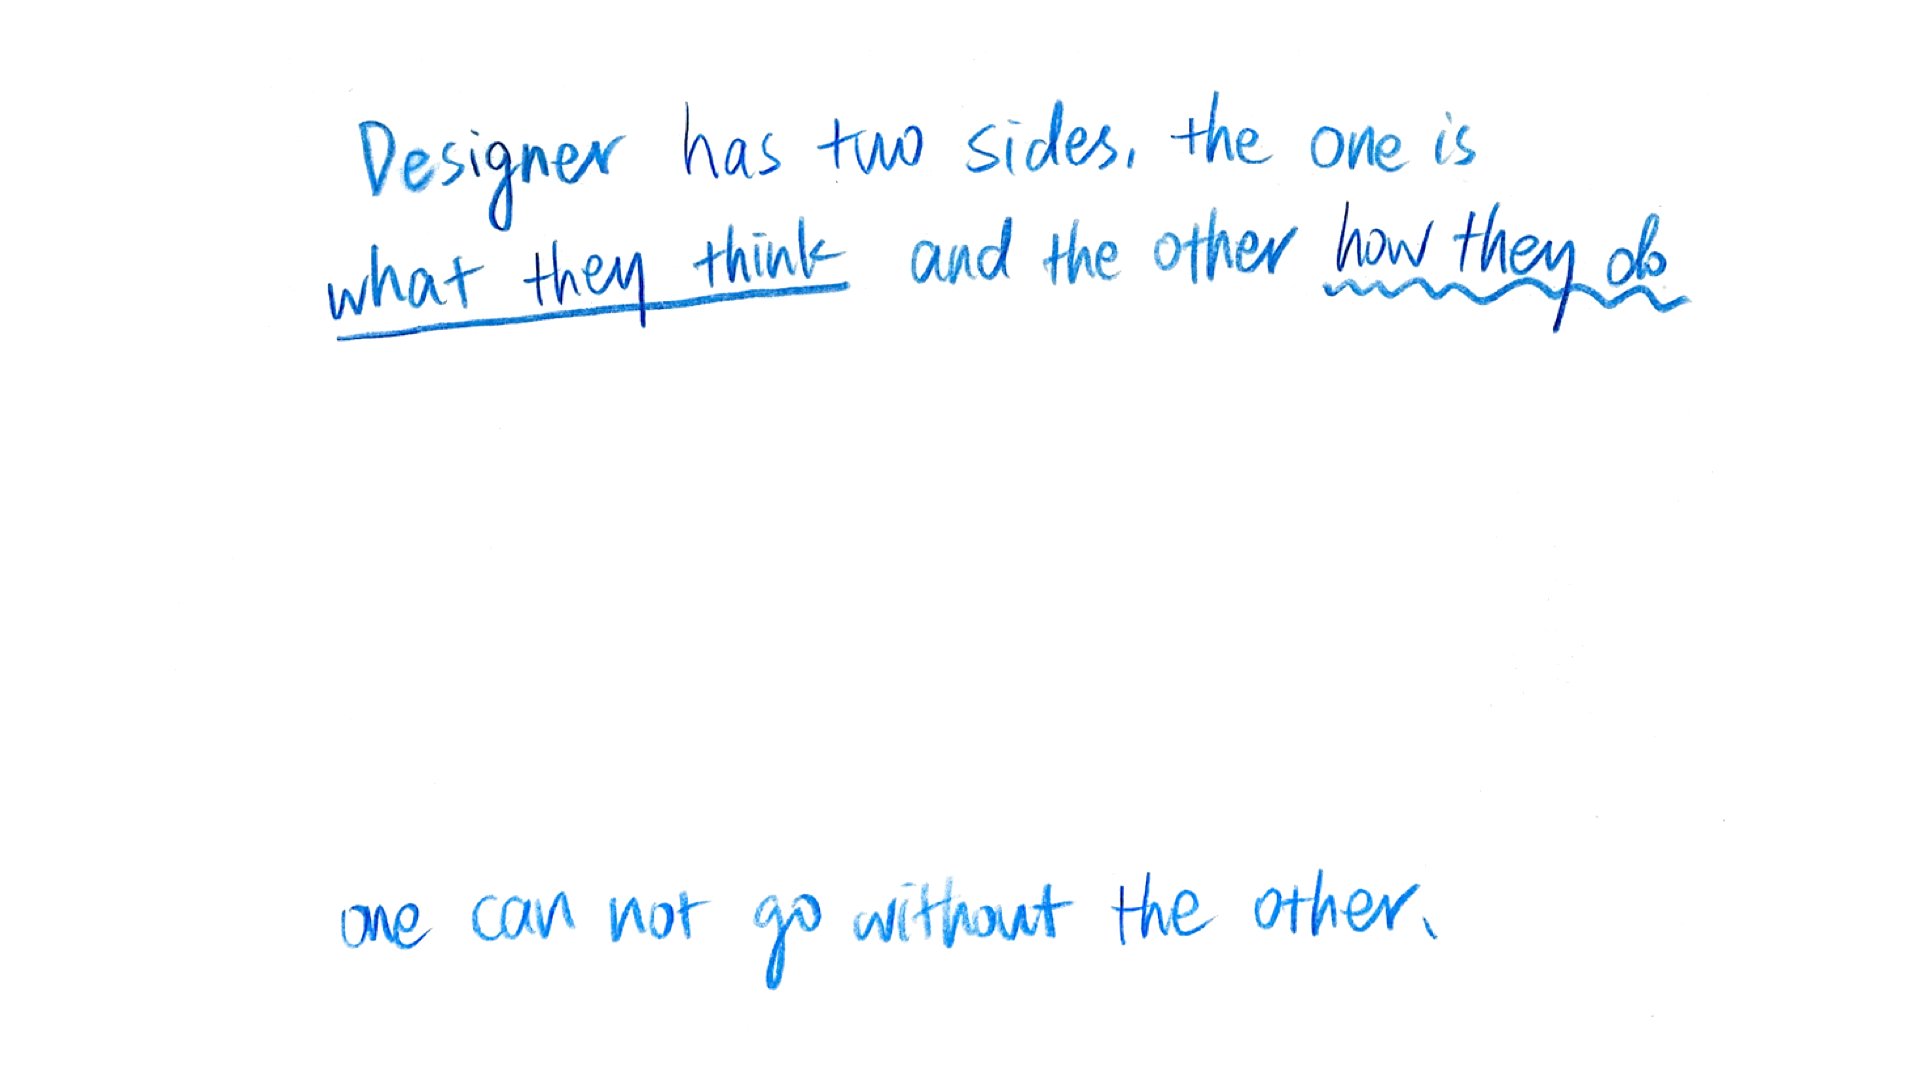 Designer has two sides, the one is
what they think and the other how they do
one can not go without the other.